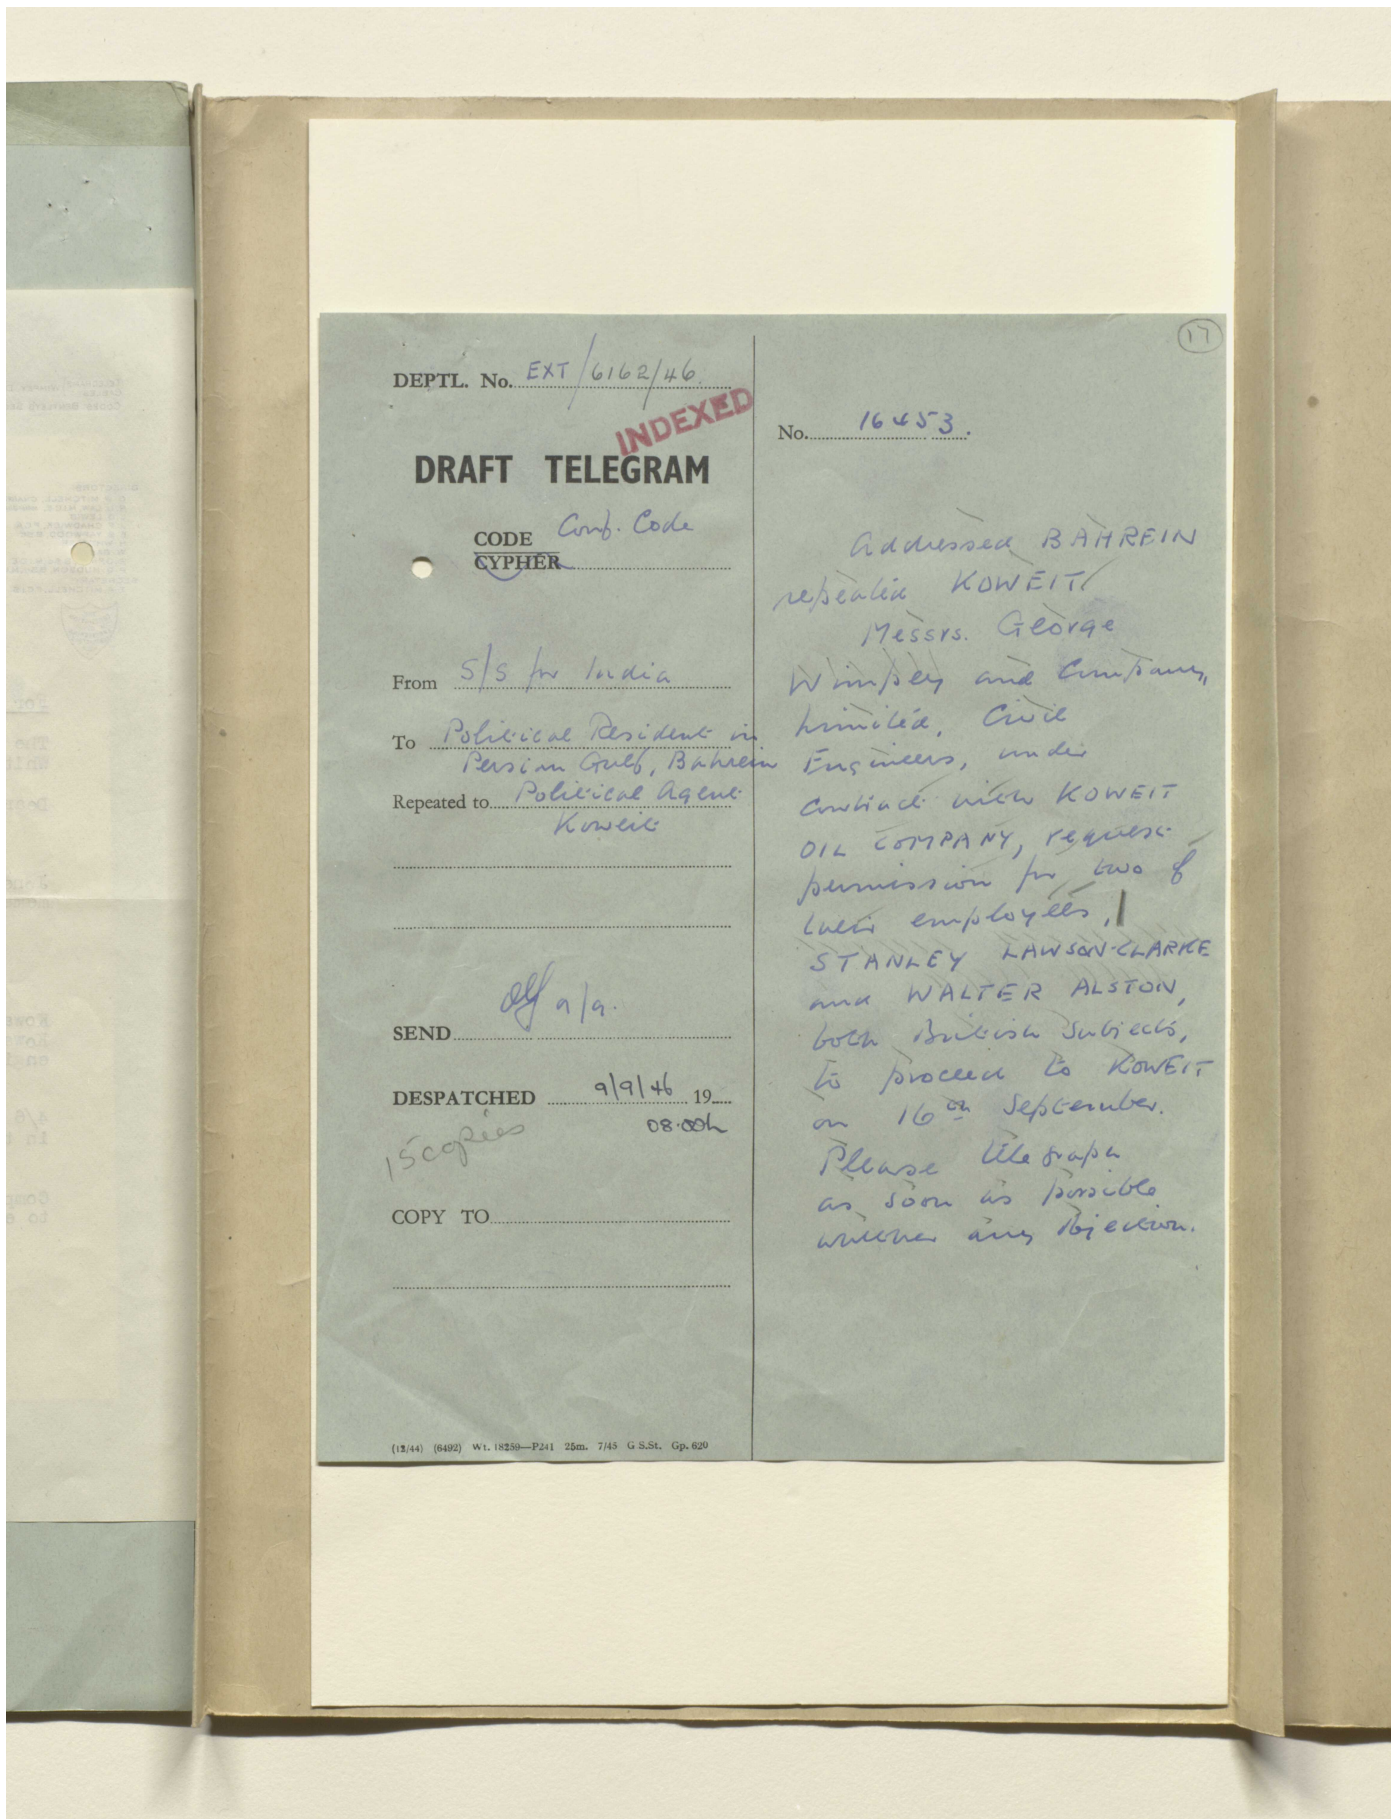 17
DEPTL. No. EXT/6162/46.
INDEXED
DRAFT TELEGRAM
CODE Conf. Code
CYPHER
From S/S for India
To Political Resident in
Persian Gulf, Bahrein
Repeated to Political Agent
Koweit
SEND 9/9.
DESPATCHED 9/9/46 19
08.00h
15 copies
COPY TO
(12/44) (6492) Wt. 18259—P241 25m. 7/45 G.S.St. Gp. 620
No. 16453.
Addressed BAHREIN
repeated KOWEIT
Messrs. George
Wimpey and Company,
Limited, Civil
Engineers, under
contract with KOWEIT
OIL COMPANY, request
permission for two of
their employees,
STANLEY LAWSON-CLARKE
and WALTER ALSTON,
both British Subjects,
to proceed to KOWEIT
on 16th September.
Please telegraph
as soon as possible
whether any objection.